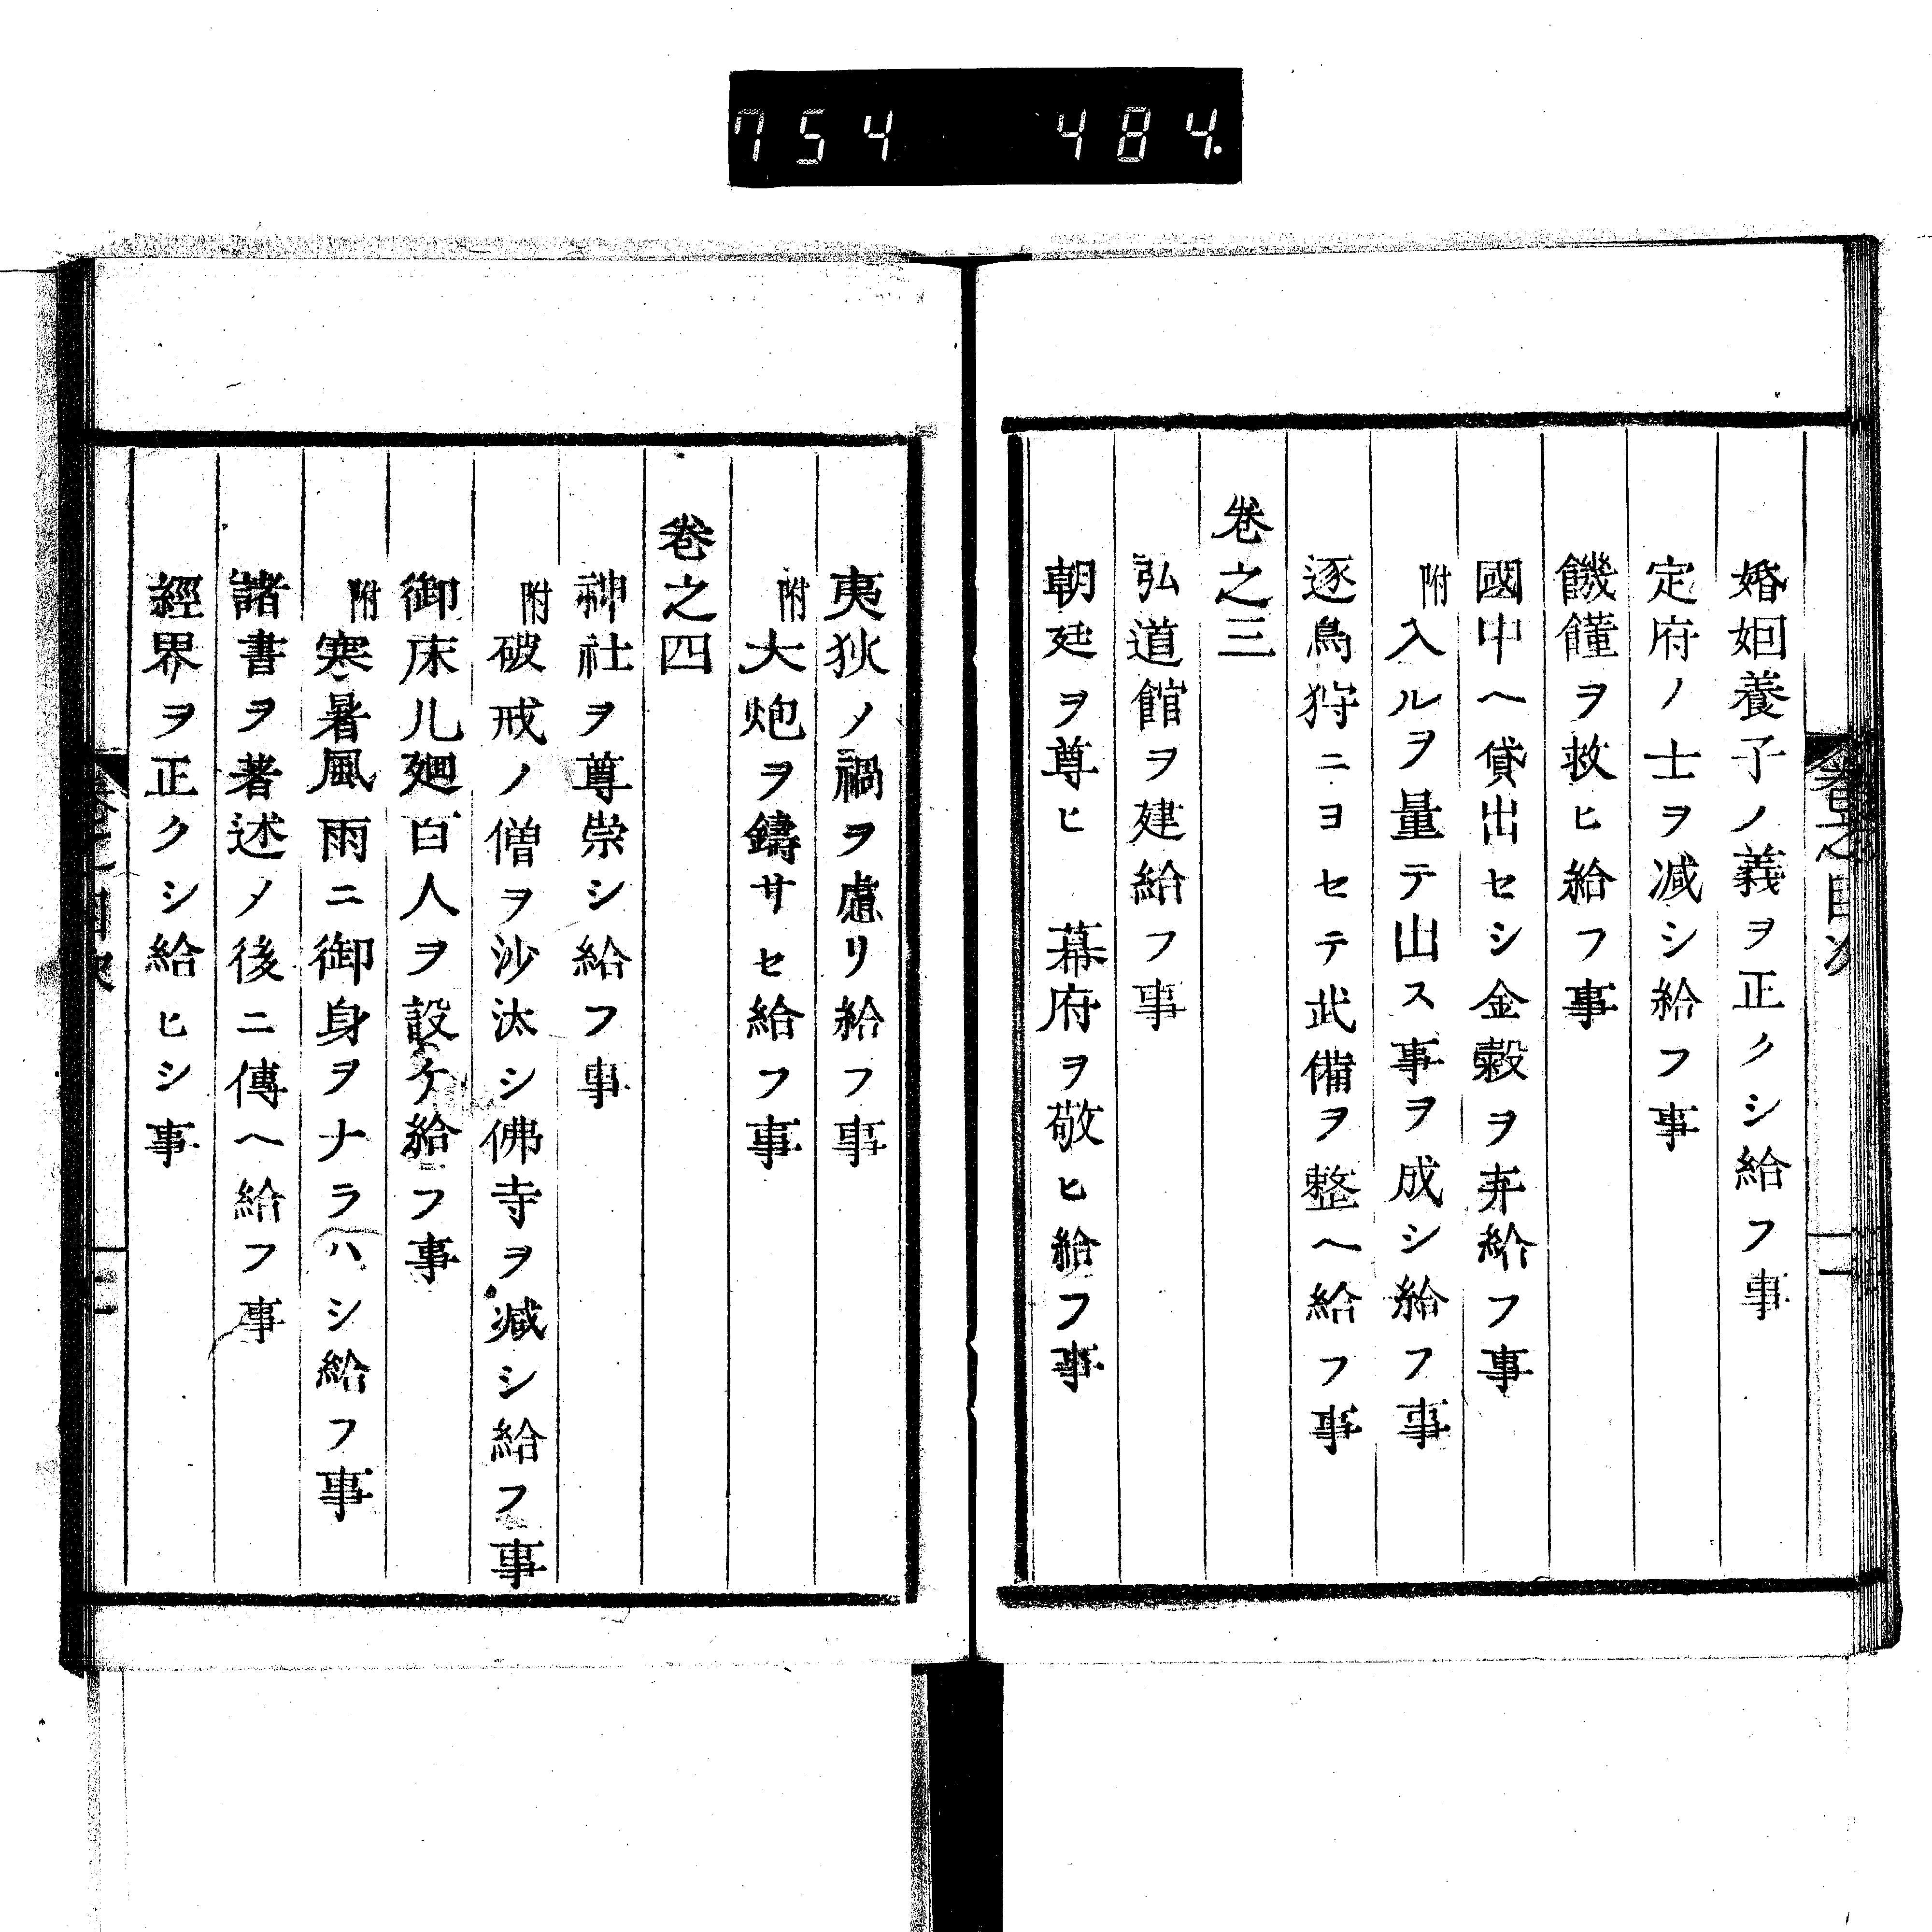 754 484.
婚姻養子ノ義ヲ正クシ給フ事
定府ノ士ヲ減シ給フ事
饑饉ヲ救ヒ給フ事
國中ヘ貸出セシ金穀ヲ弃給フ事
附入ルヲ量テ出ス事ヲ成シ給フ事
逐鳥狩ニヨセテ武備ヲ整ヘ給フ事
卷之三
弘道館ヲ建給フ事
朝廷ヲ尊ヒ 幕府ヲ敬ヒ給フ事
夷狄ノ禍ヲ慮リ給フ事
附大炮ヲ鑄サセ給フ事
卷之四
神社ヲ尊崇シ給フ事
附破戒ノ僧ヲ沙汰シ佛寺ヲ減シ給フ事
御床几廻百人ヲ設ケ給フ事
附寒暑風雨ニ御身ヲナラハシ給フ事
諸書ヲ著述ノ後ニ傳ヘ給フ事
經界ヲ正クシ給ヒシ事